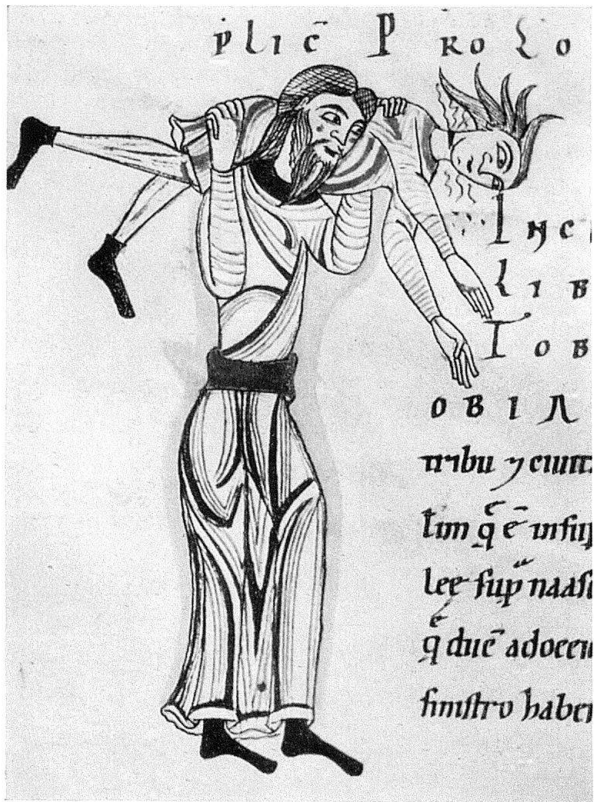 PLIC̄ PROLO
INC
LIB
TOB
OBIA
tribu ⁊ ciuit
lim q̄ ē inſup
lee ſup naaſ
q̄ duc̄ adoccen
ſiniſtro haben